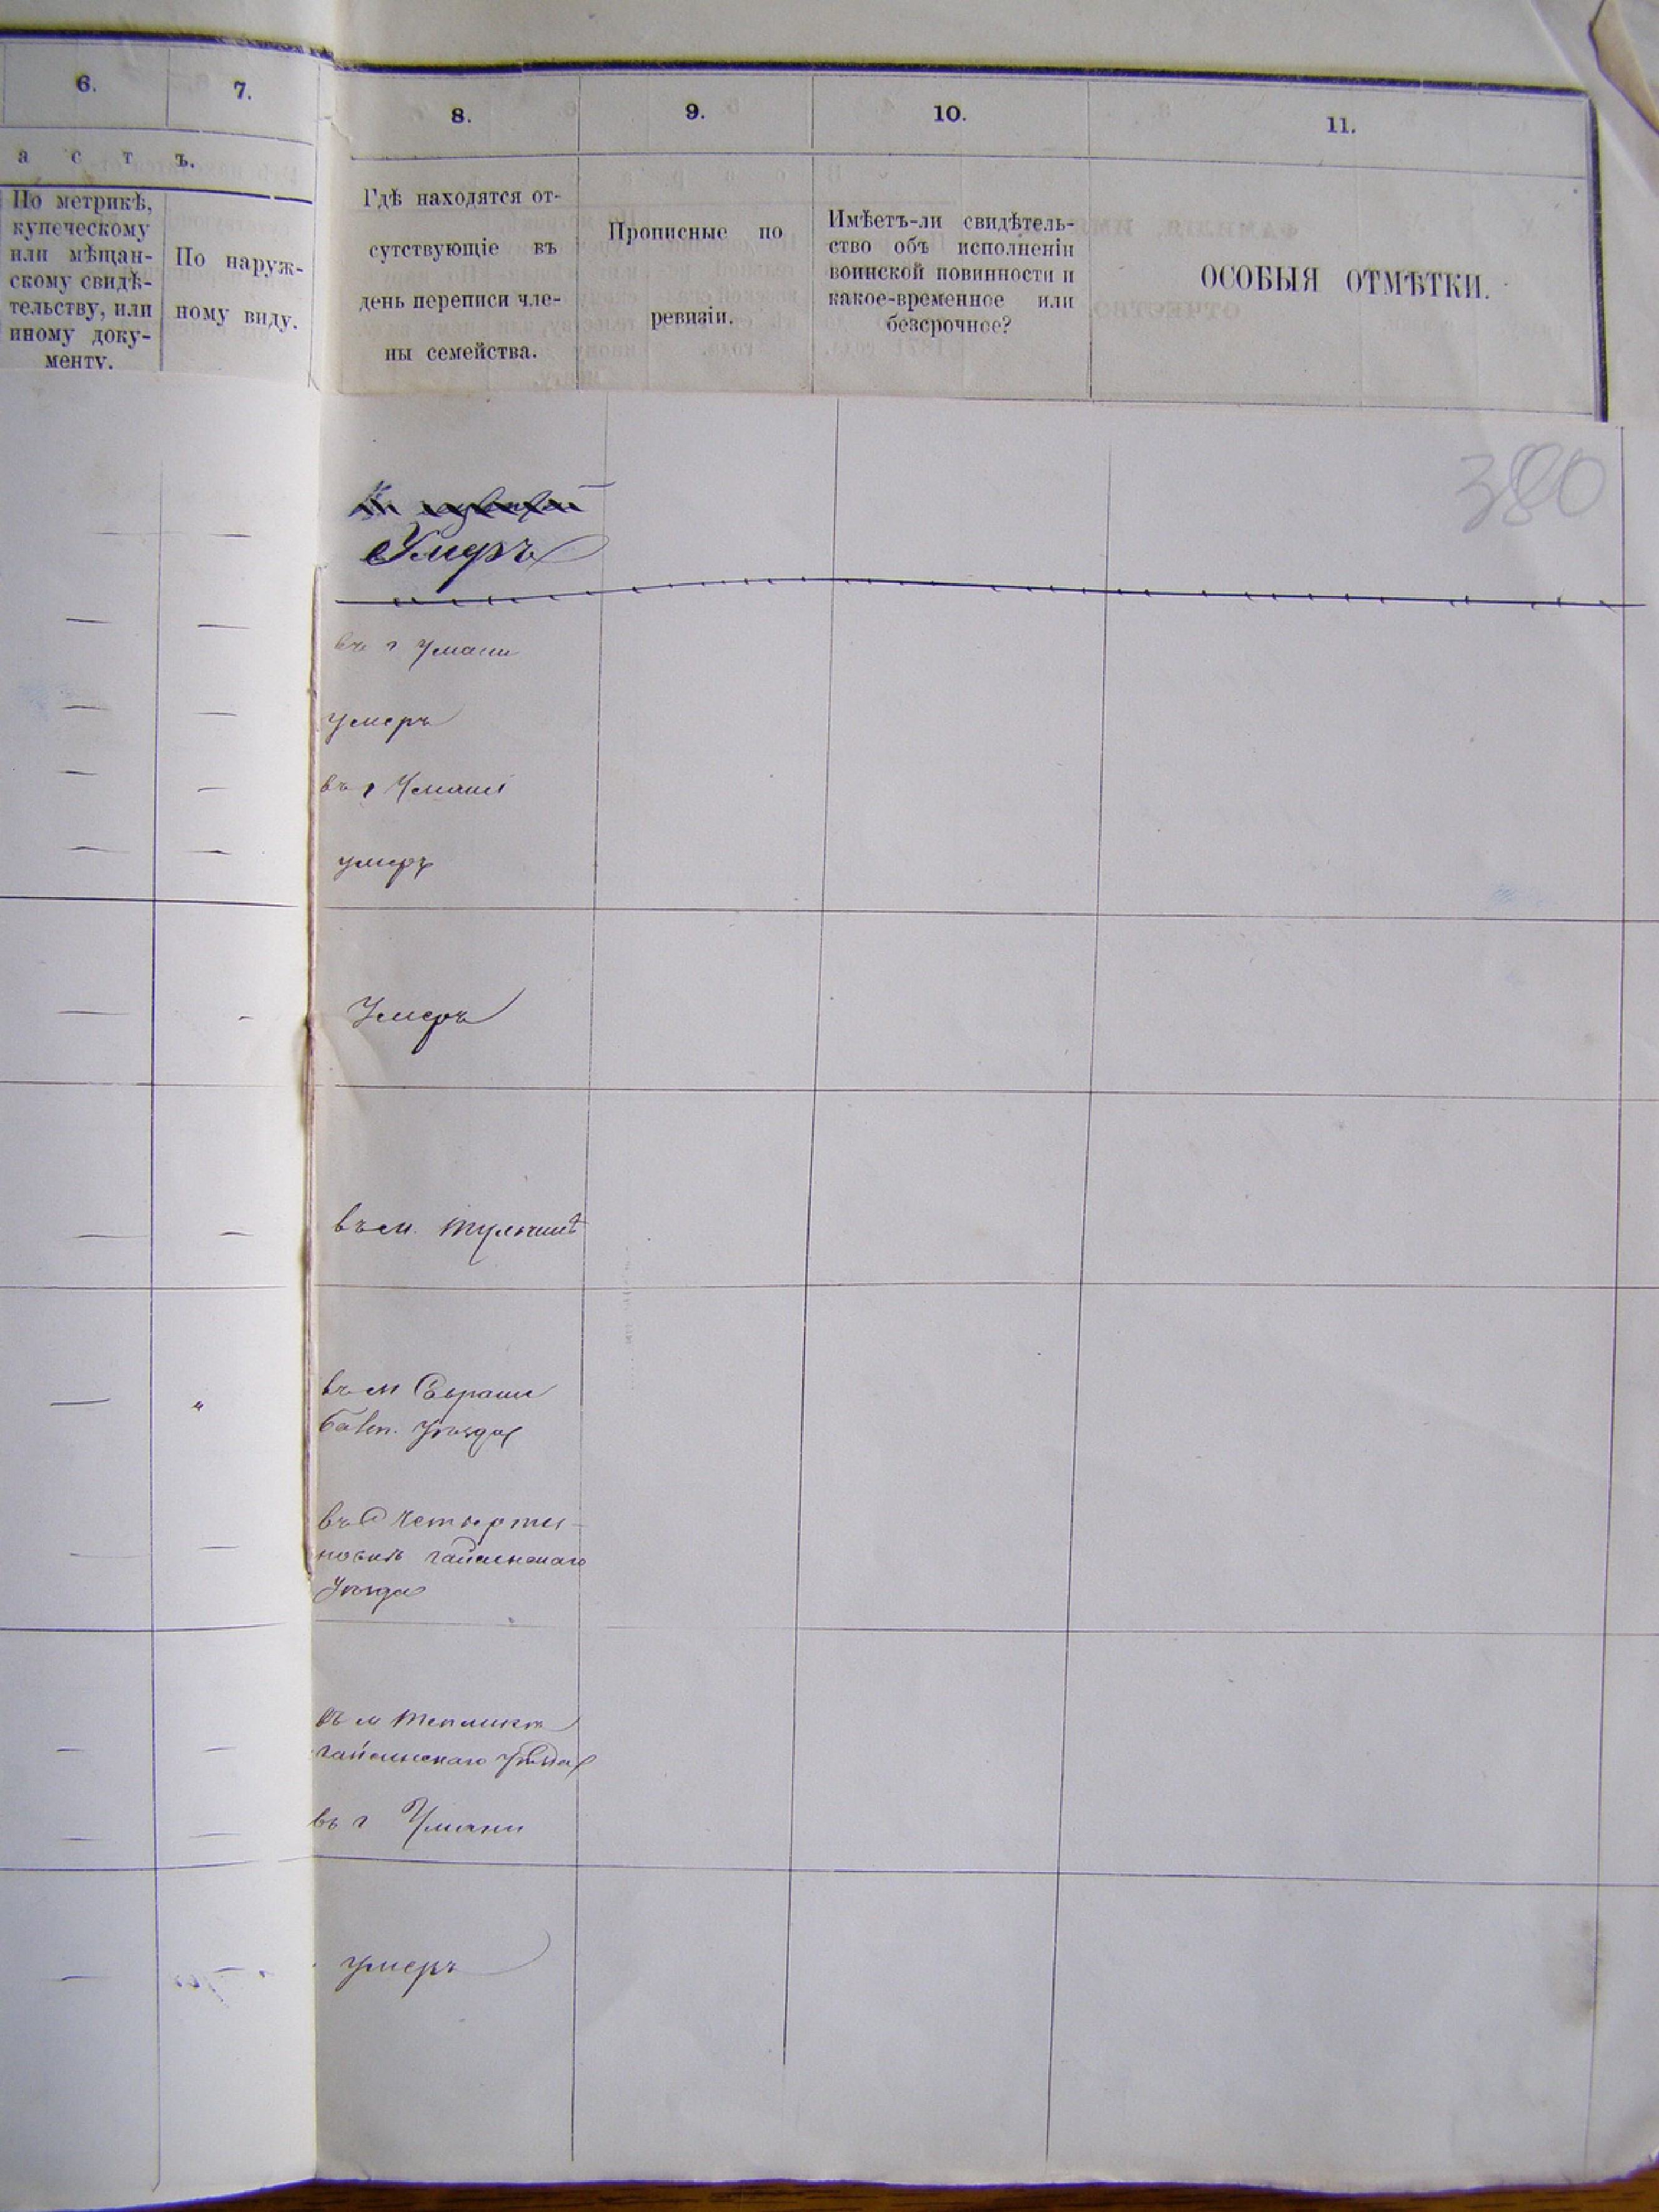 6.
7.
8.
9.
10.
11.
а с т ъ.
По метрикѣ,
купеческому
или мѣщан-
скому свидѣ-
тельству, или
иному доку-
менту.
По наруж-
ному виду.
Гдѣ находятся от-
сутствующіе въ
день переписи чле-
ны семейства.
Прописные по
ревизіи.
Имѣетъ-ли свидѣтель-
ство объ исполненіи
воинской повинности и
какое-временное или
безсрочное?
ОСОБЫЯ ОТМѢТКИ.
380
Умеръ
въ г Умани
умеръ
въ г Умани
умеръ
Умеръ
въ м. Тульчинѣ
въ м Саврани
Балт. уѣзда
въ С Четверти-
новкѣ гайсинскаго
уѣзда
въ м Тепликѣ
гайсинскаго уѣзда
въ г Умани
умеръ